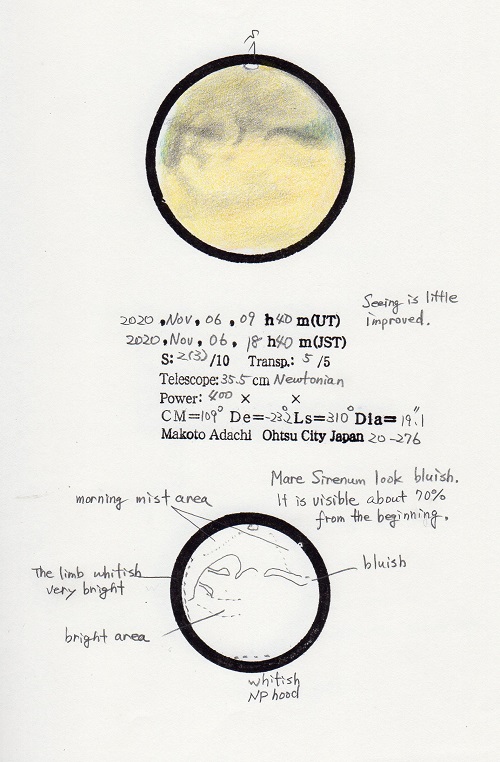 S
2020, Nov, 06, 09 h40 m(UT)
2020, Nov, 06, 18 h40 m(JST)
S: 2(3)/10 Transp.: 5/5
Telescope: 35.5 cm Newtonian
Power: 400 × ×
CM=109° De=-23.2° Ls=310° Dia= 19.″1
Makoto Adachi Ohtsu City Japan 20-276
Seeing is little
improved.
Mare Sirenum look bluish.
It is visible about 70%
from the beginning.
morning mist area
The limb whitish
very bright
bluish
bright area
whitish
NP hood